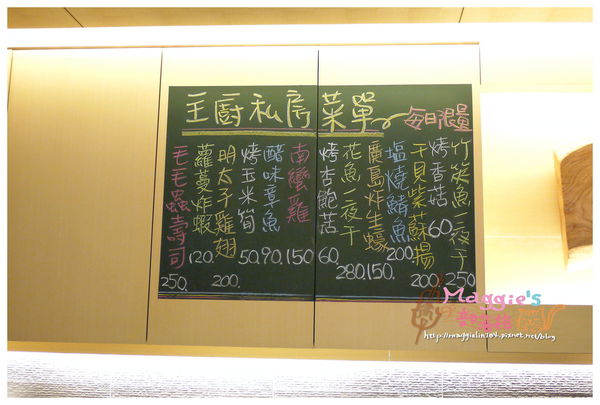 主廚私房菜單
每日限量
竹筴魚一夜干
250
烤香菇
60.
干貝紫蘇揚
200
塩燒鯖魚
200
廣島炸生蠔
150.
花魚一夜干
280
烤杏鮑菇
60.
南蠻雞
150
醋味章魚
90.
烤玉米筍
50.
明太子雞翅
200.
蘿蔓炸蝦
120.
毛毛蟲壽司
250.
Maggie's
http://maggielin204.pixnet.net/blog